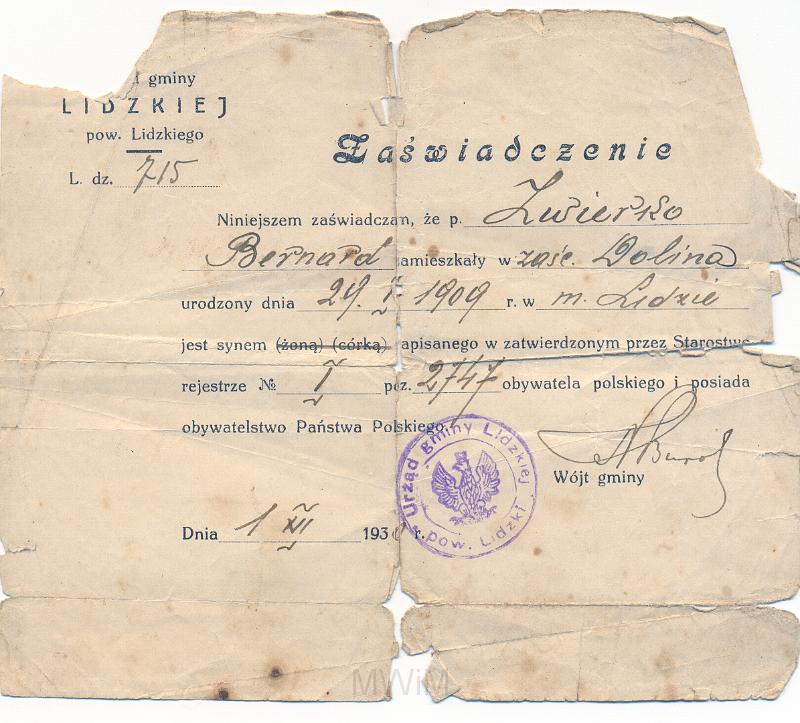 gminy
LIDZKIEJ
pow. Lidzkiego
L. dz. 715
Zaświadczenie
Niniejszem zaświadczam, że p. Zwierko
Bernard zamieszkały w zaśc. Dolina
urodzony dnia 29. V 1909 r. w m. Lidzie
jest synem (żoną) (córką) zapisanego w zatwierdzonym przez Starostwo
rejestrze № I poz. 2747 obywatela polskiego i posiada
obywatelstwo Państwa Polskiego.
Urząd gminy Lidzkiej
pow. Lidzki
Wójt gminy
Dnia 1 XII 193 r.
MWiM